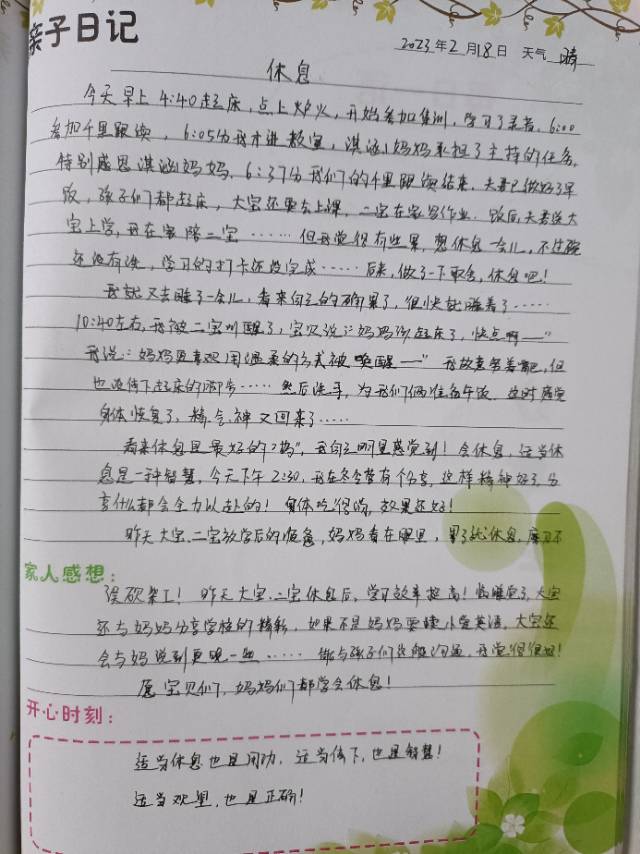 亲子日记
2023年2月18日 天气 晴
休息
今天早上4:40起床，点上炉火，开始参加集训，学习了录音，6:00
参加千里跟读，6:05分我才进教室，淇涵妈妈承担了主持的任务，
特别感恩淇涵妈妈，6:37分我们的千里跟读结束，夫君已做好了早
饭，孩子们都起床，大宝还要去上课，二宝在家写作业。饭后夫君送大
宝上学，我在家陪二宝……但我觉得有些累，想休息一会儿，不过碗
还没有洗，学习的打卡还没完成……后来，做了一下取舍，休息吧！
我就又去睡了一会儿，看来自己的确累了，很快就睡着了……
10:40左右，我被二宝叫醒了，宝贝说："妈妈你起床了，快点啊——"
我说："妈妈更喜观用温柔的方式被唤醒——"我故意努着嘴，但
也没停下起床的脚步……然后洗手，为我们俩准备午饭。这时感觉
身体恢复了，精、气、神又回来了……
看来休息是最好的"药"，我自己明显感觉到！会休息，适当休
息是一种智慧，今天下午2:30，我在冬令营有个分享，这样精神好了，分
享什么都会全力以赴的！身体吃得消，效果还好！
昨天大宝、二宝放学后的疲惫，妈妈看在眼里，累了就休息，磨刀不
家人感想：
误砍柴工！昨天大宝、二宝休息后，学习效率挺高！临睡前，大宝
还与妈妈分享学校的精彩，如果不是妈妈要读小莹英语，大宝还
会与妈说到更晚一些……能与孩子们这般沟通，我觉得很好！
愿宝贝们，妈妈们都学会休息！
开心时刻：
适当休息也是用功，适当停下，也是智慧！
适当观望，也是正确！